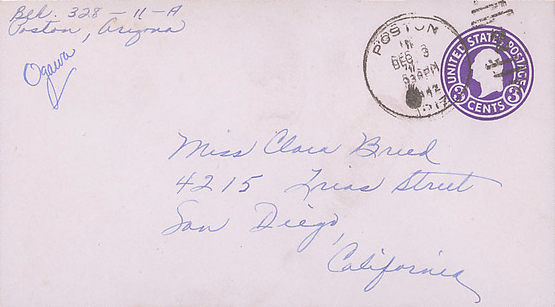 Blk. 328-11-A
Poston, Arizona
Ogawa
POSTON
DEC 3
ARIZ
UNITED STATES POSTAGE
3 CENTS 3
Miss Clara Breed
4215 Trias Street
San Diego,
California